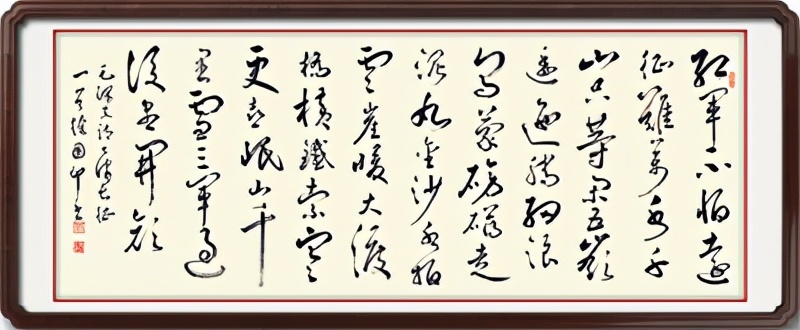 紅軍不怕遠
征難萬水千
山只等閑五嶺
逶迤騰細浪
烏蒙磅礴走
泥丸金沙水拍
雲崖暖大渡
橋橫鐵索寒
更喜岷山千
里雪三軍過
後盡開顏
毛澤東詩七律長征
一首徐國印书